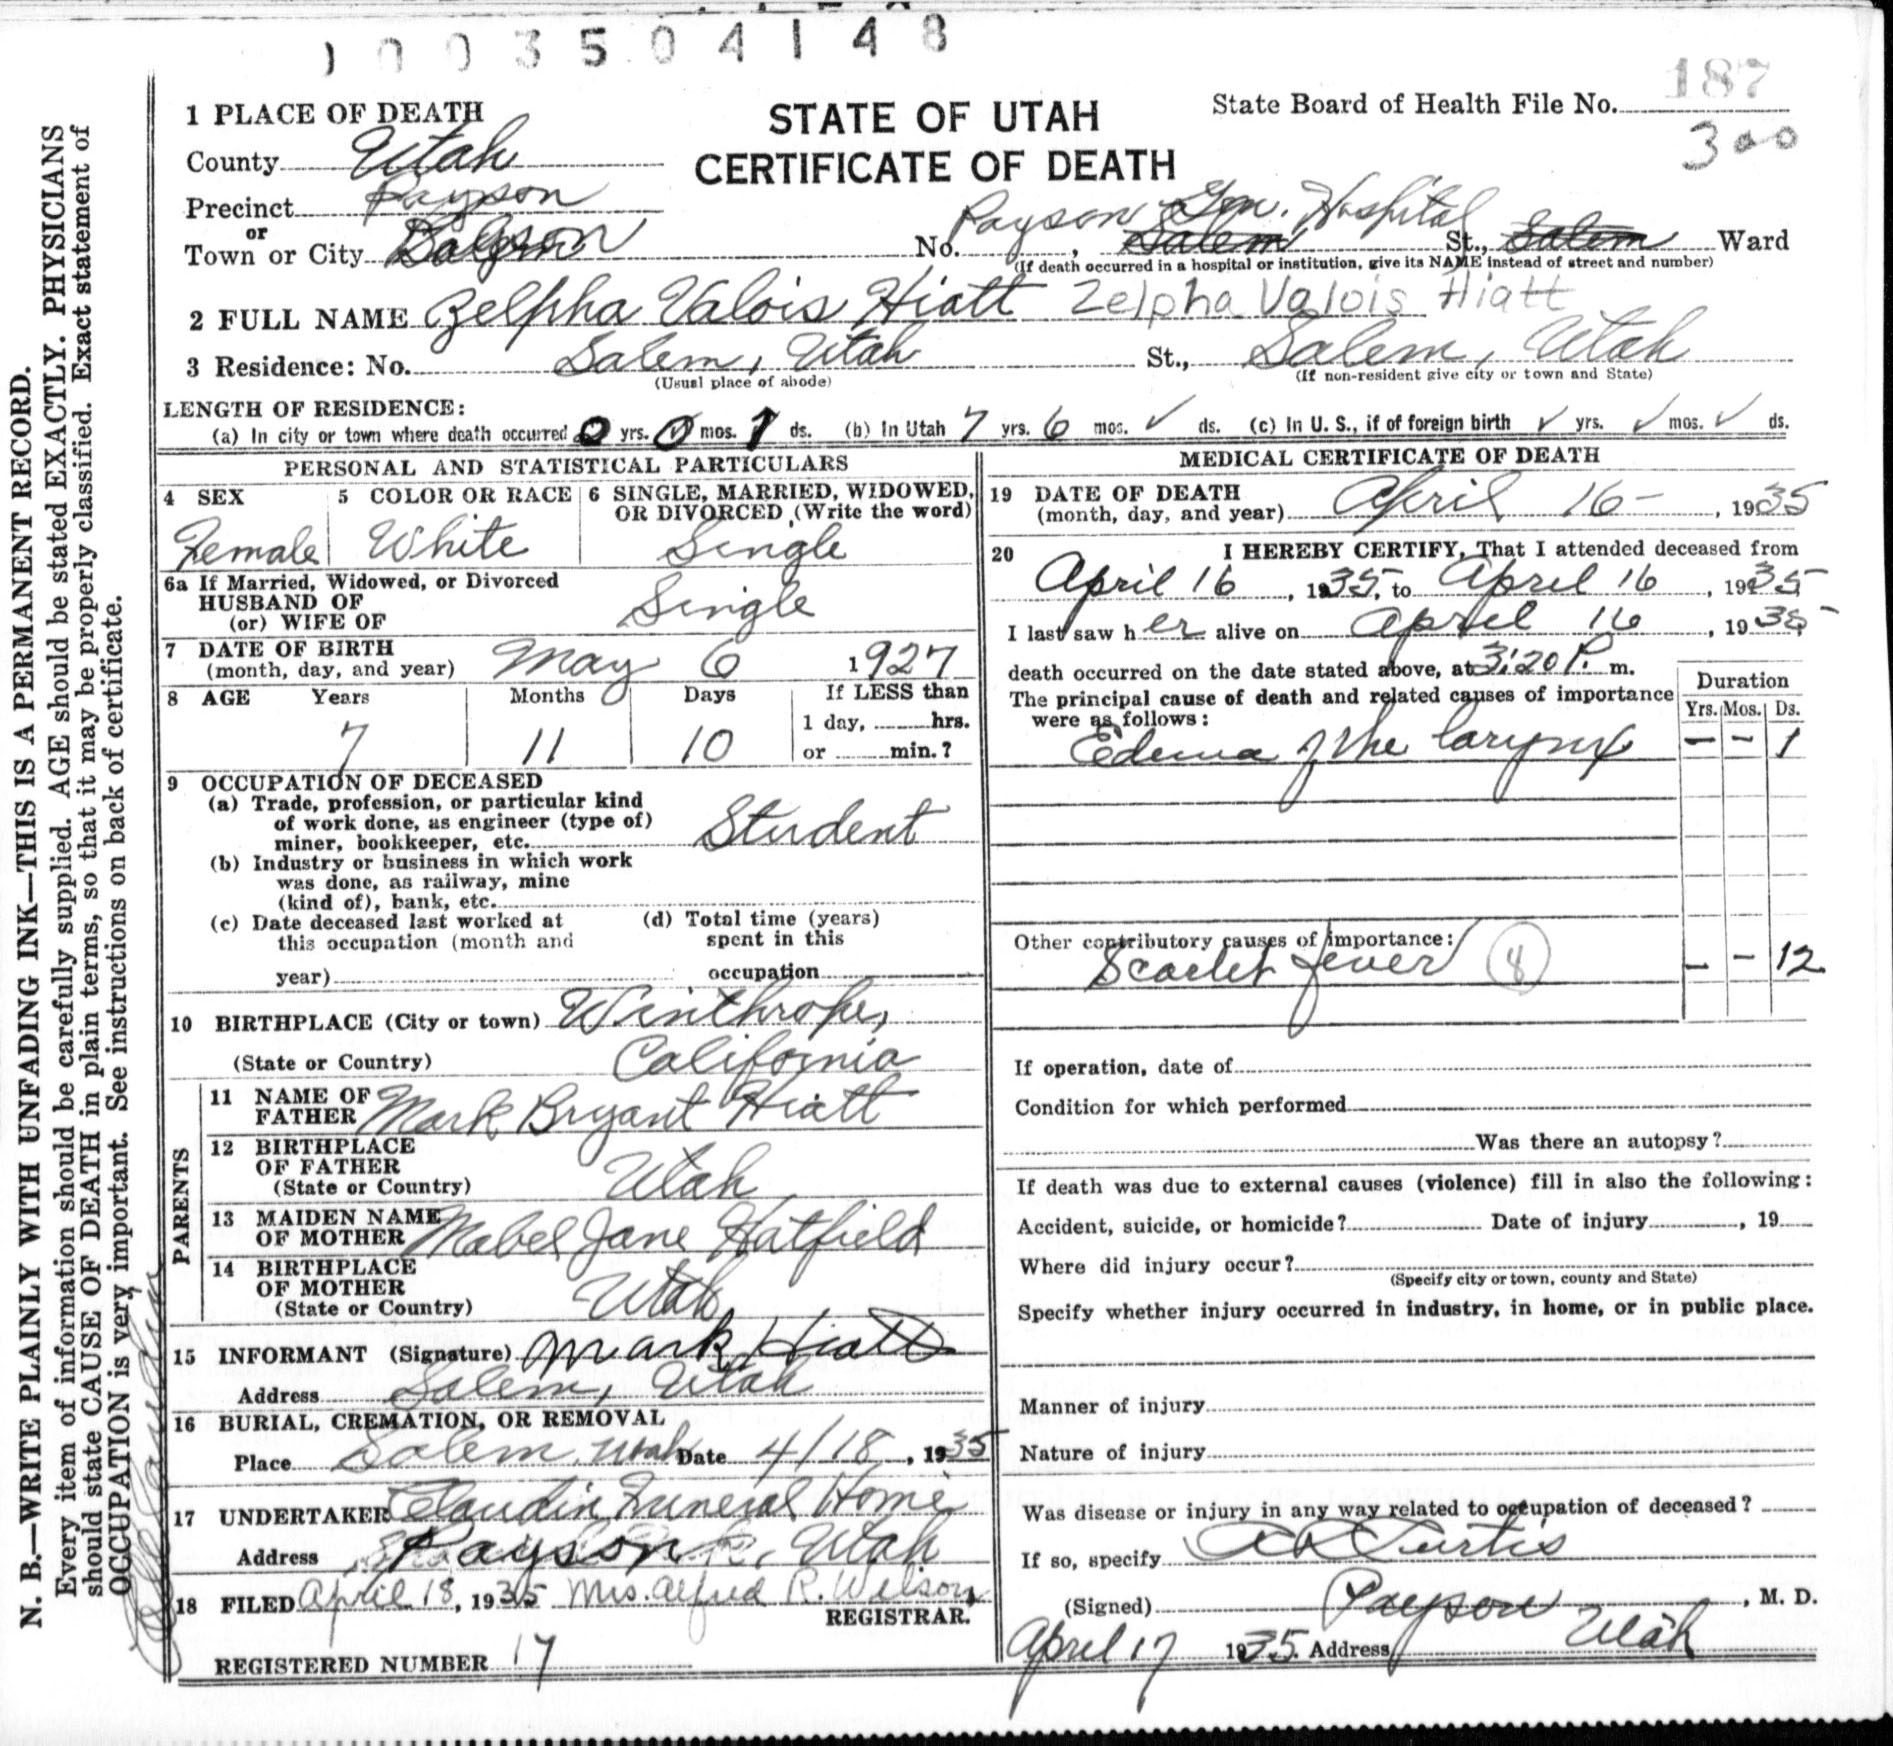 1003504148
187
300
1 PLACE OF DEATH
STATE OF UTAH
CERTIFICATE OF DEATH
State Board of Health File No.
County Utah
Precinct Payson
or
Town or City Payson
No. Payson Gen. Hospital, Salem St., Salem Ward
(If death occurred in a hospital or institution, give its NAME instead of street and number)
2 FULL NAME Zelpha Valois Hiatt Zelpha Valois Hiatt
3 Residence: No. Salem, Utah St., Salem, Utah
(Usual place of abode) (If non-resident give city or town and State)
LENGTH OF RESIDENCE:
(a) In city or town where death occurred 0 yrs. 0 mos. 1 ds. (b) In Utah 7 yrs. 6 mos. ✓ ds. (c) In U. S., if of foreign birth ✓ yrs. ✓ mos. ✓ ds.
PERSONAL AND STATISTICAL PARTICULARS
4 SEX 5 COLOR OR RACE 6 SINGLE, MARRIED, WIDOWED, OR DIVORCED (Write the word)
Female White Single
6a If Married, Widowed, or Divorced
HUSBAND OF
(or) WIFE OF Single
7 DATE OF BIRTH
(month, day, and year) May 6 1927
8 AGE Years Months Days If LESS than
1 day, hrs.
7 11 10 or min.?
9 OCCUPATION OF DECEASED
(a) Trade, profession, or particular kind
of work done, as engineer (type of)
miner, bookkeeper, etc. Student
(b) Industry or business in which work
was done, as railway, mine
(kind of), bank, etc.
(c) Date deceased last worked at
this occupation (month and
year)
(d) Total time (years)
spent in this
occupation
10 BIRTHPLACE (City or town) Winthrope,
(State or Country) California
PARENTS
11 NAME OF
FATHER Mark Bryant Hiatt
12 BIRTHPLACE
OF FATHER
(State or Country) Utah
13 MAIDEN NAME
OF MOTHER Mabel Jane Hatfield
14 BIRTHPLACE
OF MOTHER
(State or Country) Utah
15 INFORMANT (Signature) Mark Hiatt
Address Salem, Utah
16 BURIAL, CREMATION, OR REMOVAL
Place Salem, Utah Date 4/18, 1935
17 UNDERTAKER Claudin Funeral Home
Address Payson, Utah
18 FILED April 18, 1935 Mrs. Alfred R. Wilson,
REGISTRAR.
REGISTERED NUMBER 17
MEDICAL CERTIFICATE OF DEATH
19 DATE OF DEATH
(month, day, and year) April 16-, 1935
20 I HEREBY CERTIFY, That I attended deceased from
April 16, 1935, to April 16, 1935
I last saw her alive on April 16, 1935
death occurred on the date stated above, at 3:20 P. m.
The principal cause of death and related causes of importance
were as follows:
Duration
Yrs. Mos. Ds.
Edema of the larynx - - 1
Other contributory causes of importance:
Scarlet fever 8 - - 12
If operation, date of
Condition for which performed
Was there an autopsy?
If death was due to external causes (violence) fill in also the following:
Accident, suicide, or homicide? Date of injury, 19
Where did injury occur?
(Specify city or town, county and State)
Specify whether injury occurred in industry, in home, or in public place.
Manner of injury
Nature of injury
Was disease or injury in any way related to occupation of deceased?
If so, specify Curtis
(Signed) Payson, M. D.
April 17 1935. Address Utah
N. B.—WRITE PLAINLY WITH UNFADING INK—THIS IS A PERMANENT RECORD.
Every item of information should be carefully supplied. AGE should be stated EXACTLY. PHYSICIANS
should state CAUSE OF DEATH in plain terms, so that it may be properly classified. Exact statement of
OCCUPATION is very important. See instructions on back of certificate.